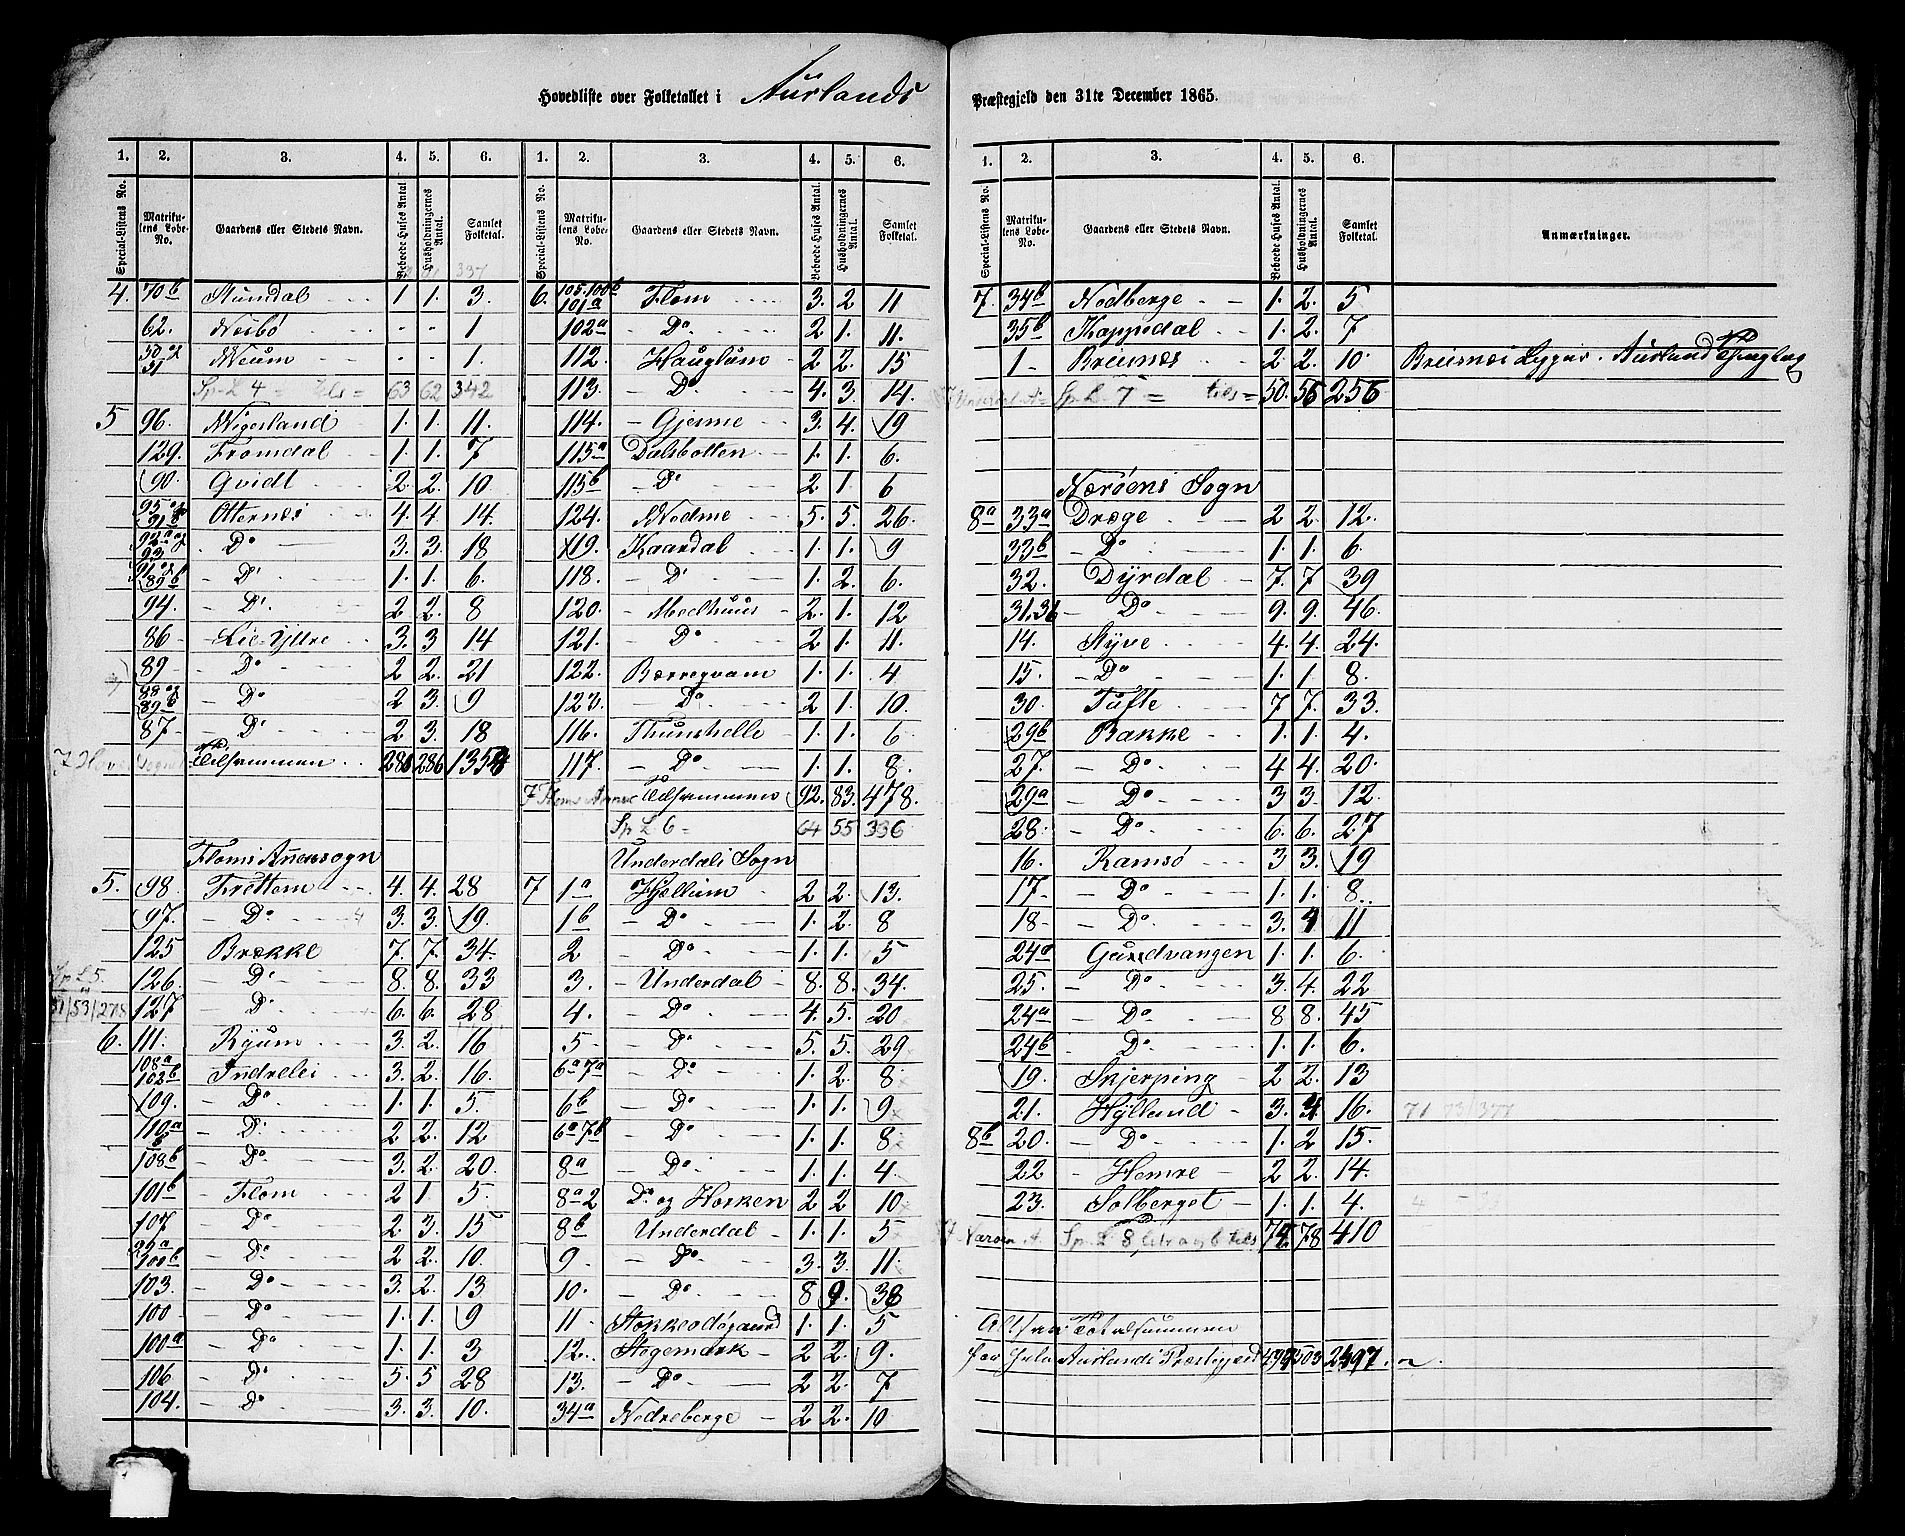 Hovedliste over Folketallet i Aurlands
Præstegjeld den 31te December 1865.
1. 2. 3. 4. 5. 6.
Special-Listens No. Matrikulens Løbe-No. Gaardens eller Stedets Navn. Beboede Huses Antal. Husholdningernes Antal. Samlet Folketal.
337
4. 70b Mundal 1 1. 3.
62. Nesbø - - 1
50 og 51 - - 1.
Sp. L 4 = tils = 63 62 342
5 96. 1. 1. 11.
129. Fromdal 1. 1. 7
90. Gvidt 2. 2. 10
95 og 91b Otternes 4. 4. 14.
92a og 93 Do 3. 3. 18
91 og 89b Do 1. 1. 6.
94. Do 2 2. 8
86 Lie-Yttre 3. 3 14
89 Do 2 2. 21
88 og 89b Do 2 3. 9
87 Do 2 3. 18
Tilsammen 286 286 1358
Floms Annexsogn
5. 98. Frettem 4. 4. 28
97. Do 3. 3. 19.
125 Brække 7. 7. 34.
Sp L 5. 126. Do 8. 8. 33
51/53/278 127. Do 6. 6. 28
6. 111. Ryum 3. 2. 16
108a 102b Indrelei 3. 2. 16.
109. Do 1. 1. 5.
110a Do 2 2. 12
108b Do 3. 2. 20.
101b Flom 2 1. 5.
107 Do 2. 3. 15
99a 100b Do 2 2 10.
103. Do 3. 2. 13
100 Do 1. 1. 9
100a Do 1. 1. 3
106 Do 5. 5 28
104. Do 3. 3. 10.
1. 2. 3. 4. 5. 6.
Special-Listens No. Matrikulens Løbe-No. Gaardens eller Stedets Navn. Beboede Huses Antal. Husholdningernes Antal. Samlet Folketal.
6. 105. 100b 101a Flom 3. 2 11
102a Do 2 1. 11.
112. Hauglum 2 2. 15
113. Do 4. 3. 14.
114. Gjerme 3. 4. 19
115a Dalsbotten 1. 1. 6.
115b Do 2 1 6
124. 5. 5. 26.
119. Kaardal 1. 1. 9
118. Do 1. 2. 6.
120. Melhuus 2. 1. 12
121. Do 2 1. 11.
122. Berreqvam 1. 1. 4
123. Do 2 1. 10.
116. Thunshelle 1. 1. 6
117. Do 1. 1. 8.
Floms Annex Tilsammen 92. 83. 478.
Sp L 6 = 64 55 336
Underdals Sogn
7 1a Hjellum 2 2. 13.
1b Do 1. 2 8
2 Do 1. 1. 5
3. Underdal 8. 8. 34.
4. Do 4. 5. 20
5 Do 5. 5. 29
6a 7a Do 1. 2 8
6b Do 1. 1. 9
6a 7b Do 1. 1. 8
8a Do 1. 1. 4
8a 2 Do og Horken 2 2 10
8b Underdal 1. 1. 5
9 Do 3. 3. 11.
10. Do 8 9. 38
11 Stokkeødegaard 1. 1. 5
12. Stegemark 2 2. 9.
13. Do 2 2. 7
34a Nedreberge 2 2. 10
1. 2. 3. 4. 5. 6.
Special-Listens No. Matrikulens Løbe-No. Gaardens eller Stedets Navn. Beboede Huses Antal. Husholdningernes Antal. Samlet Folketal. Anmærkninger.
7. 34b Nedberge 1. 2. 5
35b Kappedal 1. 2. 7
1 Breisnæs 2 2. 10 Breisnæs Ligger i Aurland Thinglag
Underdal A = Sp L 7 = tils = 50. 56 256
Nærøens Sogn
8a 33a Dræge 2 2. 12.
33b Do 1. 1. 6.
32. Dyrdal 7. 7 39
31.36 Do 9. 9. 46.
14. Styve 4. 4. 24.
15. Do 1. 1. 8.
30. Tufte 7 7. 33.
29b Bakke 1. 1. 4.
27. Do 4 4. 20.
29a Do 3 3. 12
28. Do 6. 6. 27
16. Ramsø 3 3. 19
17. Do 1. 1. 8.
18. Do 3. 4 11
24a Gudvangen 1. 1. 6.
25. Do 3. 4. 22
24a Do 8 8. 45
24b Do 1. 1. 6.
19. Skjerping 2 2. 13
21. Hylland 3. 4. 16. 71 73/377
8b 20. Do 1. 2 15.
22 Hemre 2 2. 14.
23. Solberget 1. 1. 4.
Nærøen A. Sp. L 8 litr a og b tils 74 78 410
Altsaa Totalsummen
for hele Aurlands Præstegjeld 503 2497.